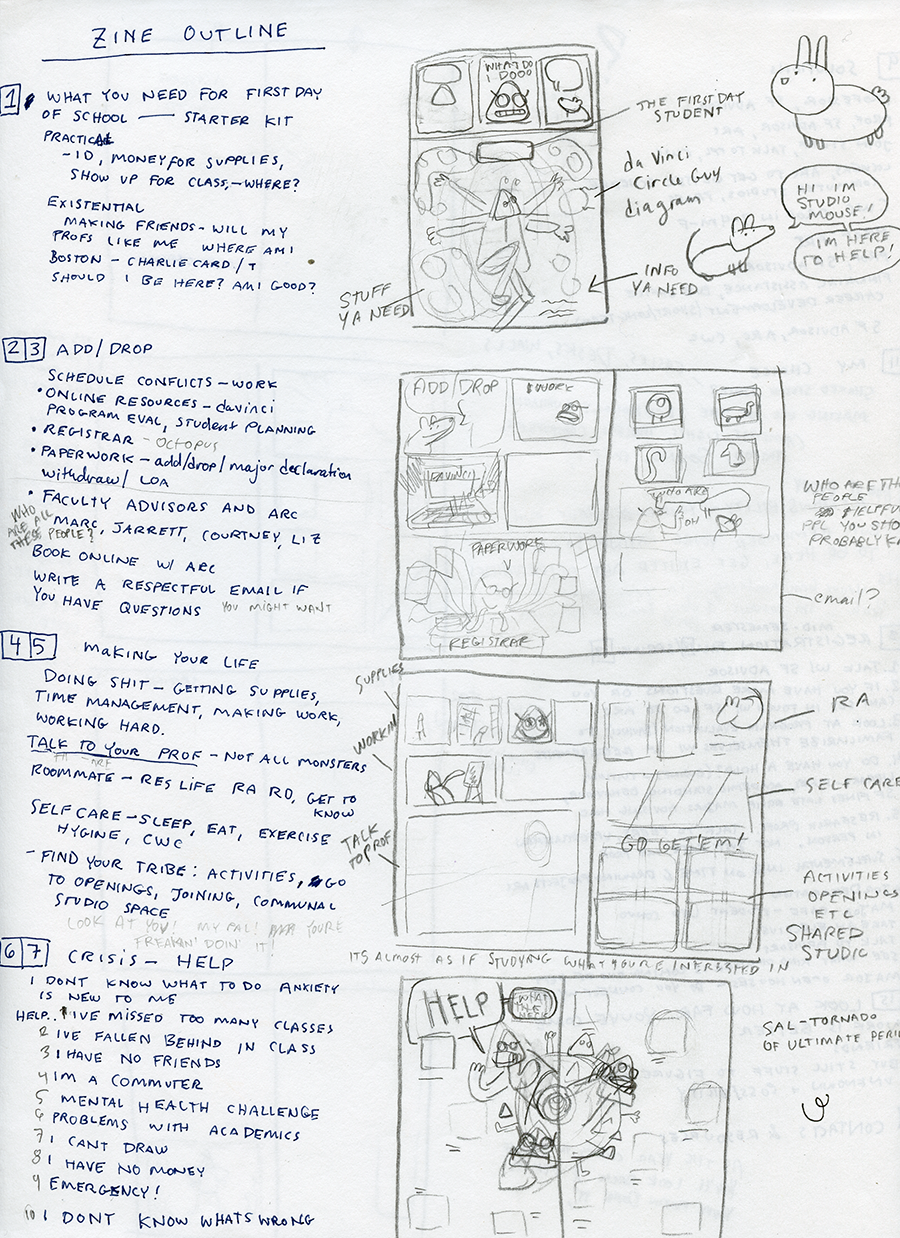 ZINE OUTLINE
1
WHAT YOU NEED FOR FIRST DAY
OF SCHOOL — STARTER KIT
PRACTICAL
- ID, MONEY FOR SUPPLIES,
SHOW UP FOR CLASS, - WHERE?
EXISTENTIAL
MAKING FRIENDS - WILL MY
PROFS LIKE ME WHERE AM I
BOSTON - CHARLIE CARD / T
SHOULD I BE HERE? AM I GOOD?
WHAT DO
I DOOO
THE FIRST DAY
STUDENT
da Vinci
Circle Guy
diagram
INFO
YA NEED
STUFF
YA NEED
HI IM
STUDIO
MOUSE!
IM HERE
TO HELP!
2 3 ADD/DROP
SCHEDULE CONFLICTS - WORK
• ONLINE RESOURCES - davinci
PROGRAM EVAL, STUDENT PLANNING
• REGISTRAR - OCTOPUS
• PAPERWORK - add/drop/major declaration
withdraw/ LOA
• FACULTY ADVISORS AND ARC
MARC, JARRETT, COURTNEY, LIZ
WHO
ARE ALL
THESE PEOPLE?
BOOK ONLINE W/ ARC
WRITE A RESPECTFUL EMAIL IF
YOU HAVE QUESTIONS YOU MIGHT WANT
ADD/DROP
WORK
DAVINCI
PAPERWORK
REGISTRAR
WHO ARE
WHO ARE TH
PEOPLE
HELPFU
PPL YOU SHO
PROBABLY K
email?
4 5 MAKING YOUR LIFE
DOING SHIT - GETTING SUPPLIES,
TIME MANAGEMENT, MAKING WORK,
WORKING HARD.
TALK TO YOUR PROF - NOT ALL MONSTERS
ROOMMATE - RES LIFE RA RD, GET TO
KNOW
SELF CARE - SLEEP, EAT, EXERCISE
HYGINE, CWC
- FIND YOUR TRIBE: ACTIVITIES, GO
TO OPENINGS, JOINING, COMMUNAL
STUDIO SPACE
LOOK AT YOU! MY PAL! YOURE
FREAKIN' DOIN' IT!
SUPPLIES
WORKIN
TALK
TO PROF
RA
SELF CARE
GO GET'EM!
ACTIVITIES
OPENINGS
ETC
SHARED
STUDIO
ITS ALMOST AS IF STUDYING WHAT YOU'RE INTERESTED IN
6 7 CRISIS - HELP
I DONT KNOW WHAT TO DO ANXIETY
IS NEW TO ME
HELP.. 1 IVE MISSED TOO MANY CLASSES
2 IVE FALLEN BEHIND IN CLASS
3 I HAVE NO FRIENDS
4 IM A COMMUTER
5 MENTAL HEALTH CHALLENGE
6 PROBLEMS WITH ACADEMICS
7 I CANT DRAW
8 I HAVE NO MONEY
9 EMERGENCY!
10 I DONT KNOW WHATS WRONG
HELP
WHAT
THE
HECK
SAL-TORNADO
OF ULTIMATE PERI